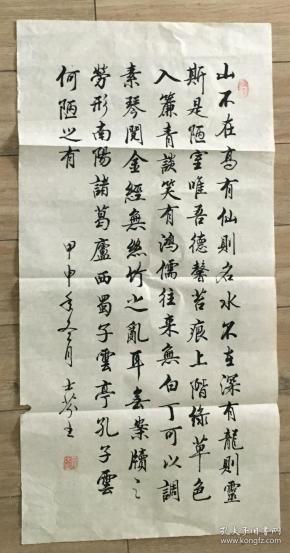 山不在高有仙则名水不在深有龍則靈
斯是陋室唯吾德馨苔痕上階綠草色
入簾青談笑有鸿儒往来無白丁可以調
素琴閱金經無絲竹之亂耳無案牘之
勞形南陽諸葛廬西蜀子雲亭孔子雲
何陋之有
甲申年冬月士芬书
孔夫子旧书网
www.kongfz.com